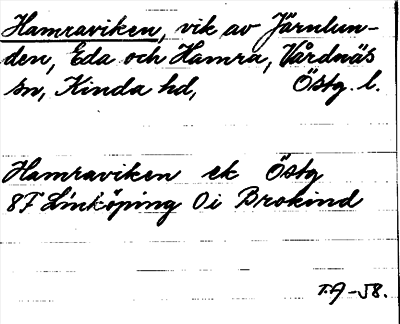 Hamraviken, vik av Järnlun-
den, Eda och Hamra, Vårdnäs
sn, Kinda hd, Östg. l.
Hamraviken ek Östg
8F Linköping 0i Brokind
T.A -58.